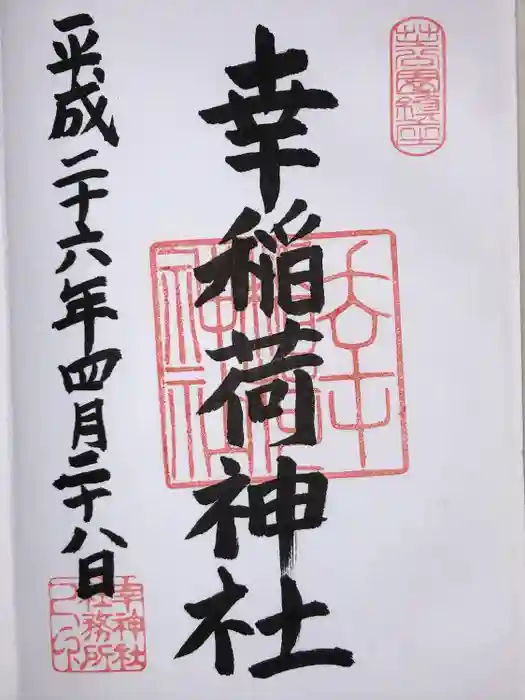 芝公園鎮座
幸稲荷神社
平成二十六年四月二十八日
幸稲荷
神社
幸神社
社務所
之印